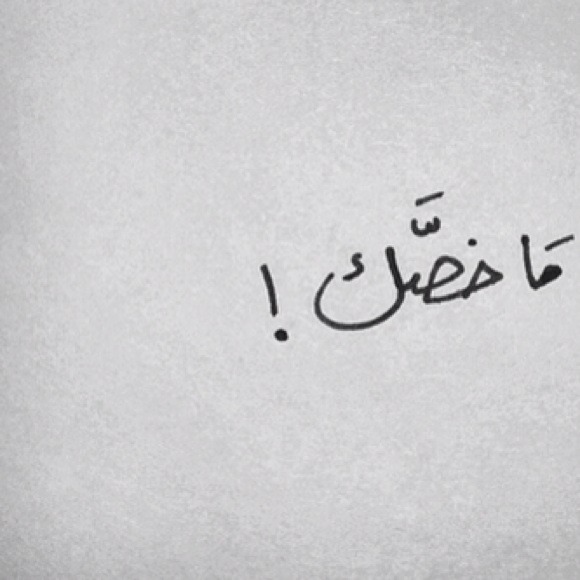 مَا خصَّك !